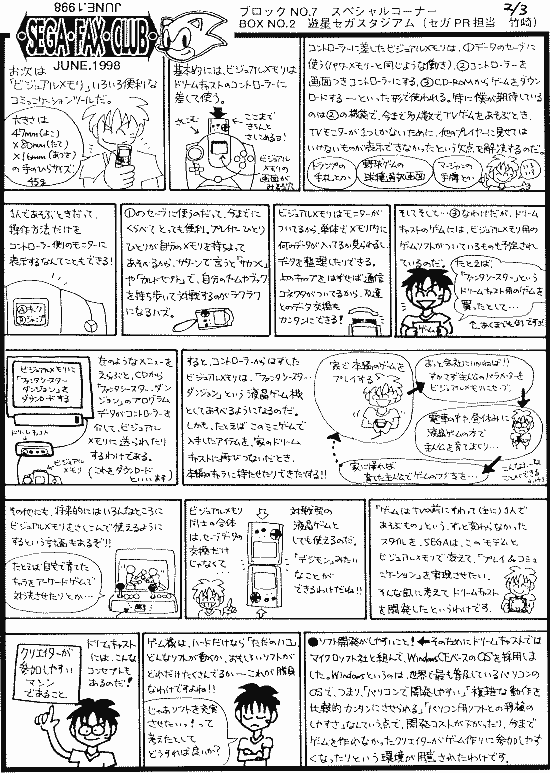 JUNE.1998
SEGA・FAX・CLUB
JUNE.1998
ブロックNO.7 スペシャルコーナー
BOX NO.2 遊星セガスタジアム(セガPR担当 竹崎)
2/3
お次は
「ビジュアルメモリ」。いろいろ便利な
コミュニケーションツールだ。
大きさは
47mm(よこ)
×80mm(たて)
×16mm(あつさ)
の手のひらサイズ。
45g
基本的には、ビジュアルメモリは
ドリームキャストのコントローラに
差して使う。
ここまで
きちんと
ささるあるヨ!
ビジュアル
メモリの
画面が
みえる穴
コントローラーに差したビジュアルメモリは、①データのセーブに
使う(パワーメモリーと同じような働き)、②コントローラを
画面つきコントローラにする、③CD-ROMからゲームをダウン
ロードする…といった形で使われる。特に僕が期待している
のは②の機能で、今まで多人数でTVゲームをあそぶとき、
TVモニターが1つしかないために、他のプレイヤーに見せては
いけないものが表示できなかったという欠点を解決するのだ。
トランプの
手札とか
野球ゲームの
球種選択画面
マージャンの
手牌とか
1人であそぶときだって、
操作方法だけを
コントローラー側のモニターに
表示するなんてこともできる!
Ⓐキック
Ⓑジャンプ
①のセーブに使うのだって、今までに
くらべてとっても便利。プレイヤーひとり
ひとりが自分のメモリを持ちよって
あそべるから、サターンで言うと「サカつく」
や「ガルドセプト」で、自分のチームやブック
を持ち歩いて対戦するのがラクラク
になるハズ。
ビジュアルメモリはモニターが
ついてるから、単体でメモリ内に
何のデータが入ってるか見ながら、
データを整理したりできる。
上のキャップをはずせば通信
コネクタがついてるから、友達
とのデータ交換も
カンタンにできる!
そしてそして…③なわけだが、ドリーム
キャストのゲームには、ビジュアルメモリ用の
ゲームソフトがついているものも予定され
ているのだ。
たとえば、
「ファンタシースター」という
ドリームキャスト用のゲームを
買ったとして…
たぁくまでも例ですョ!
ゲーム
ビジュアルメモリに
「ファンタシースター
ダンジョン」を
ダウンロードする
ドリームキャスト
ビジュアル
メモリ
左のようなメニューを
えらぶと、CDから
「ファンタシースター・ダン
ジョン」のプログラム
データがコントローラーを
介して、ビジュアル
メモリに送られたり
するわけである。
(これをダウンロード
といいます)
すると、コントローラーからはずした
ビジュアルメモリは、「ファンタシースター・
ダンジョン」という液晶ゲーム機
としてあそべるようになるのだ。
しかも、たとえばこのミニゲームで
入手したアイテムを、家のドリーム
キャストに再びつないだとき、
本編のキャラに持たせたりできたりする!!
家で本編のゲームを
プレイする
おっと会社にいかねば!!
すかさず主人公のパラメータを
ビジュアルメモリにセーブ
電車の中や、昼休みに
液晶ゲームの方で
主人公を育てまくり…
家に帰れば
育った主人公でゲームのつづきを…
そのほかにも、将来的にはいろんなところに
ビジュアルメモリをさしこんで使えるように
するという計画もあるぞ!!
たとえば自宅で育てた
キャラをアーケードゲームで
対決させたりとか…
ビジュアルメモリ
同士の合体
は、セーブデータの
交換だけ
じゃなくて
対戦型の
液晶ゲームと
しても使えるのだ。
「デジモン」みたい
なことが
できるわけだね!!
「ゲームはTVの前にすわって(主に)1人で
あそぶもの」という、ずっと変わらなかった
スタイルを、SEGAは、このモデムと
ビジュアルメモリで変えて、「プレイ&コミュ
ニケーション」を実現させたい。
そんな風に考えてドリームキャスト
を開発したというわけです。
クリエイターが
参加しやすい
マシン
であること
ドリームキャスト
には、こんな
コンセプトも
あるのだ!
ゲーム機は、ハードだけなら「ただのハコ」。
どんなソフトが動くか、おもしろいソフトが
どれだけたくさんでるか…これが勝負
なわけですよね!!
じゃあソフトを充実
させたいっ!って
考えたとして
どうすれば良いか?
●ソフト開発がしやすいこと!←そのためにドリームキャストでは
マイクロソフト社と組んで、WindowsCEベースのOSを採用しま
した。Windowsというのは、世界で最も普及しているパソコンの
OSで、つまり、「パソコンで開発しやすい」「複雑な動作を
比較的カンタンにさせられる」「パソコン用ソフトとの移植の
しやすさ」なんていう点で、開発コストが下がったり、今まで
ゲームを作れなかったクリエイターがゲーム作りに参加しやすく
なったりという環境が用意されたわけです。